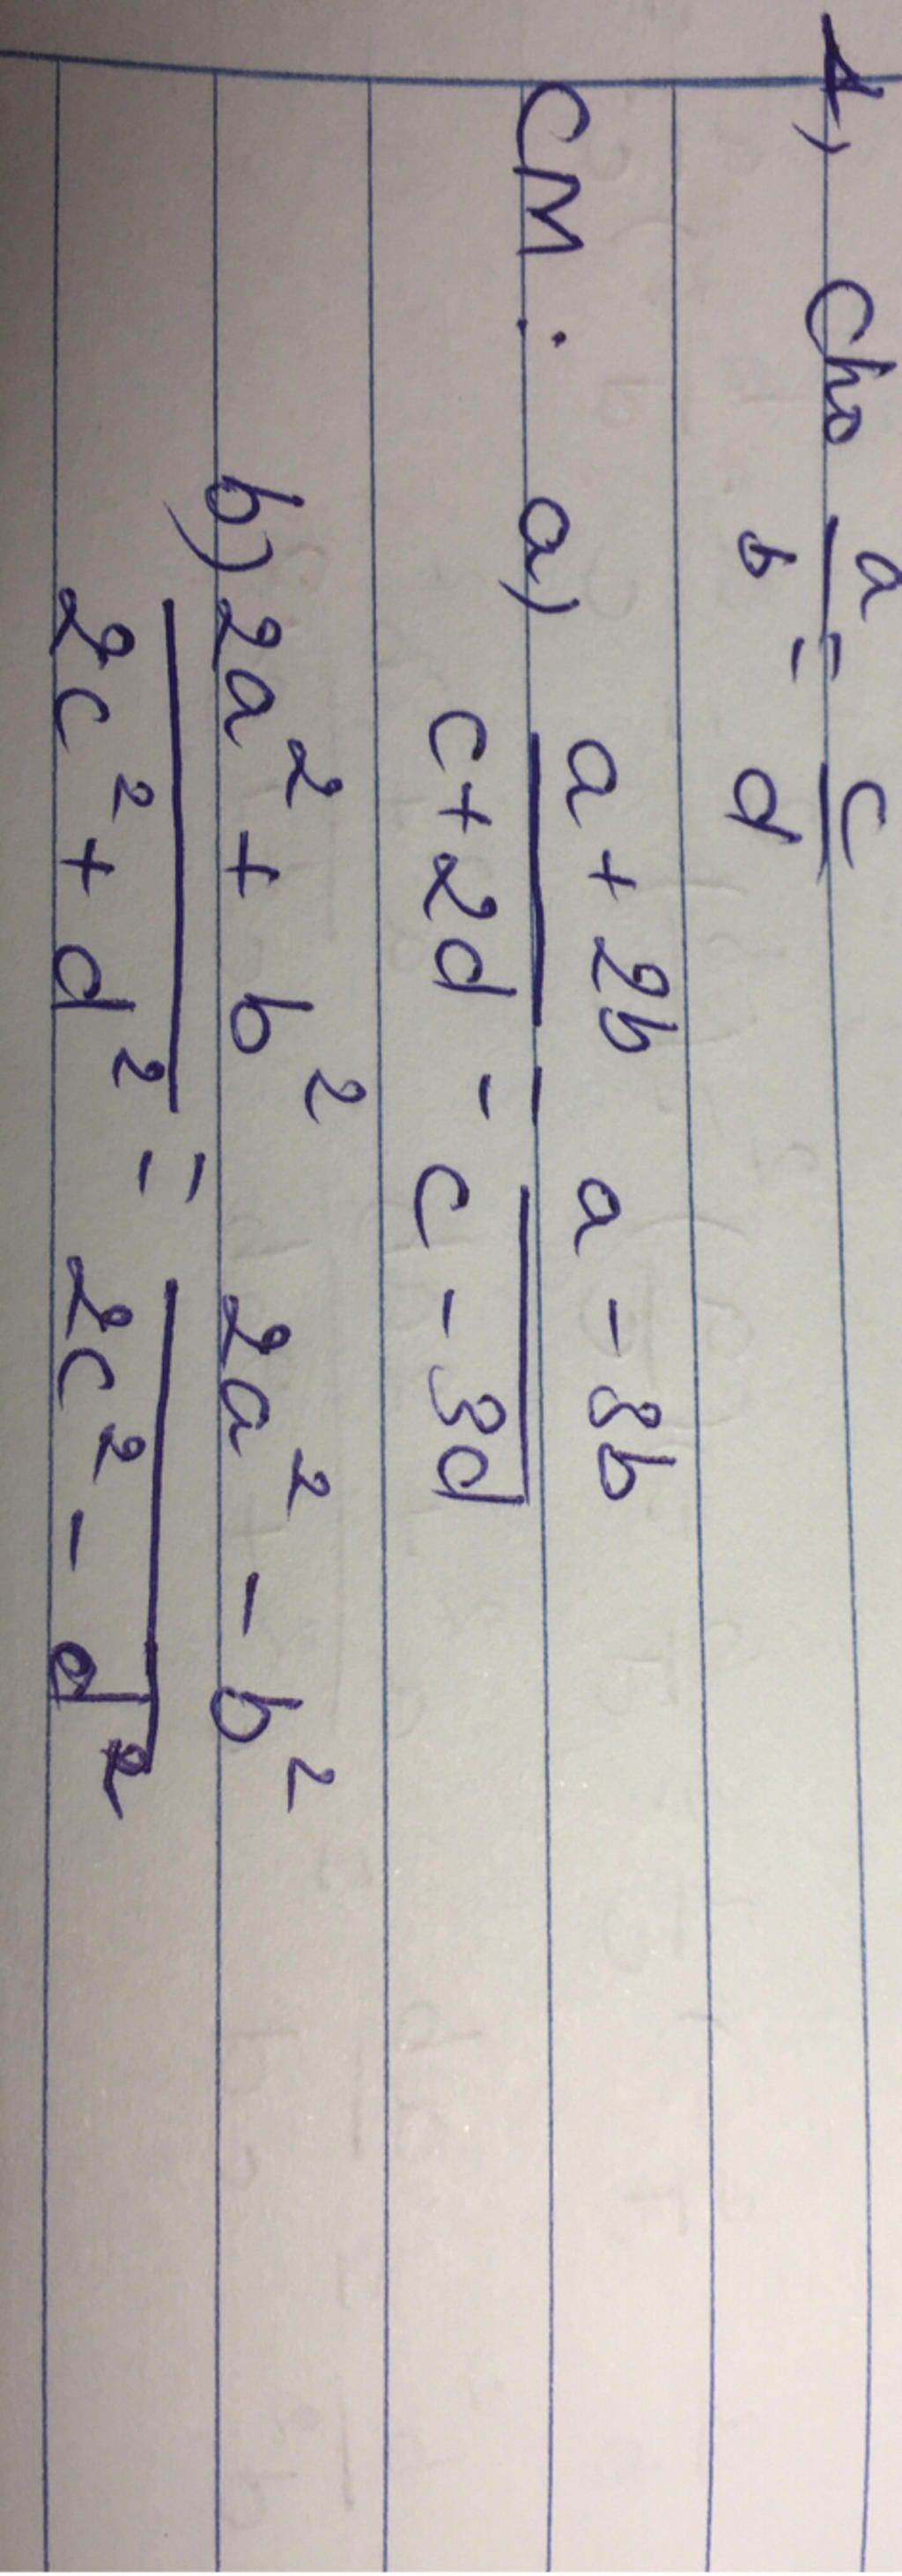 1, Cho a/b = c/d
CM : a) (a + 2b)/(c + 2d) = (a - 3b)/(c - 3d)
b) (2a² + b²)/(2c² + d²) = (2a² - b²)/(2c² - d²)